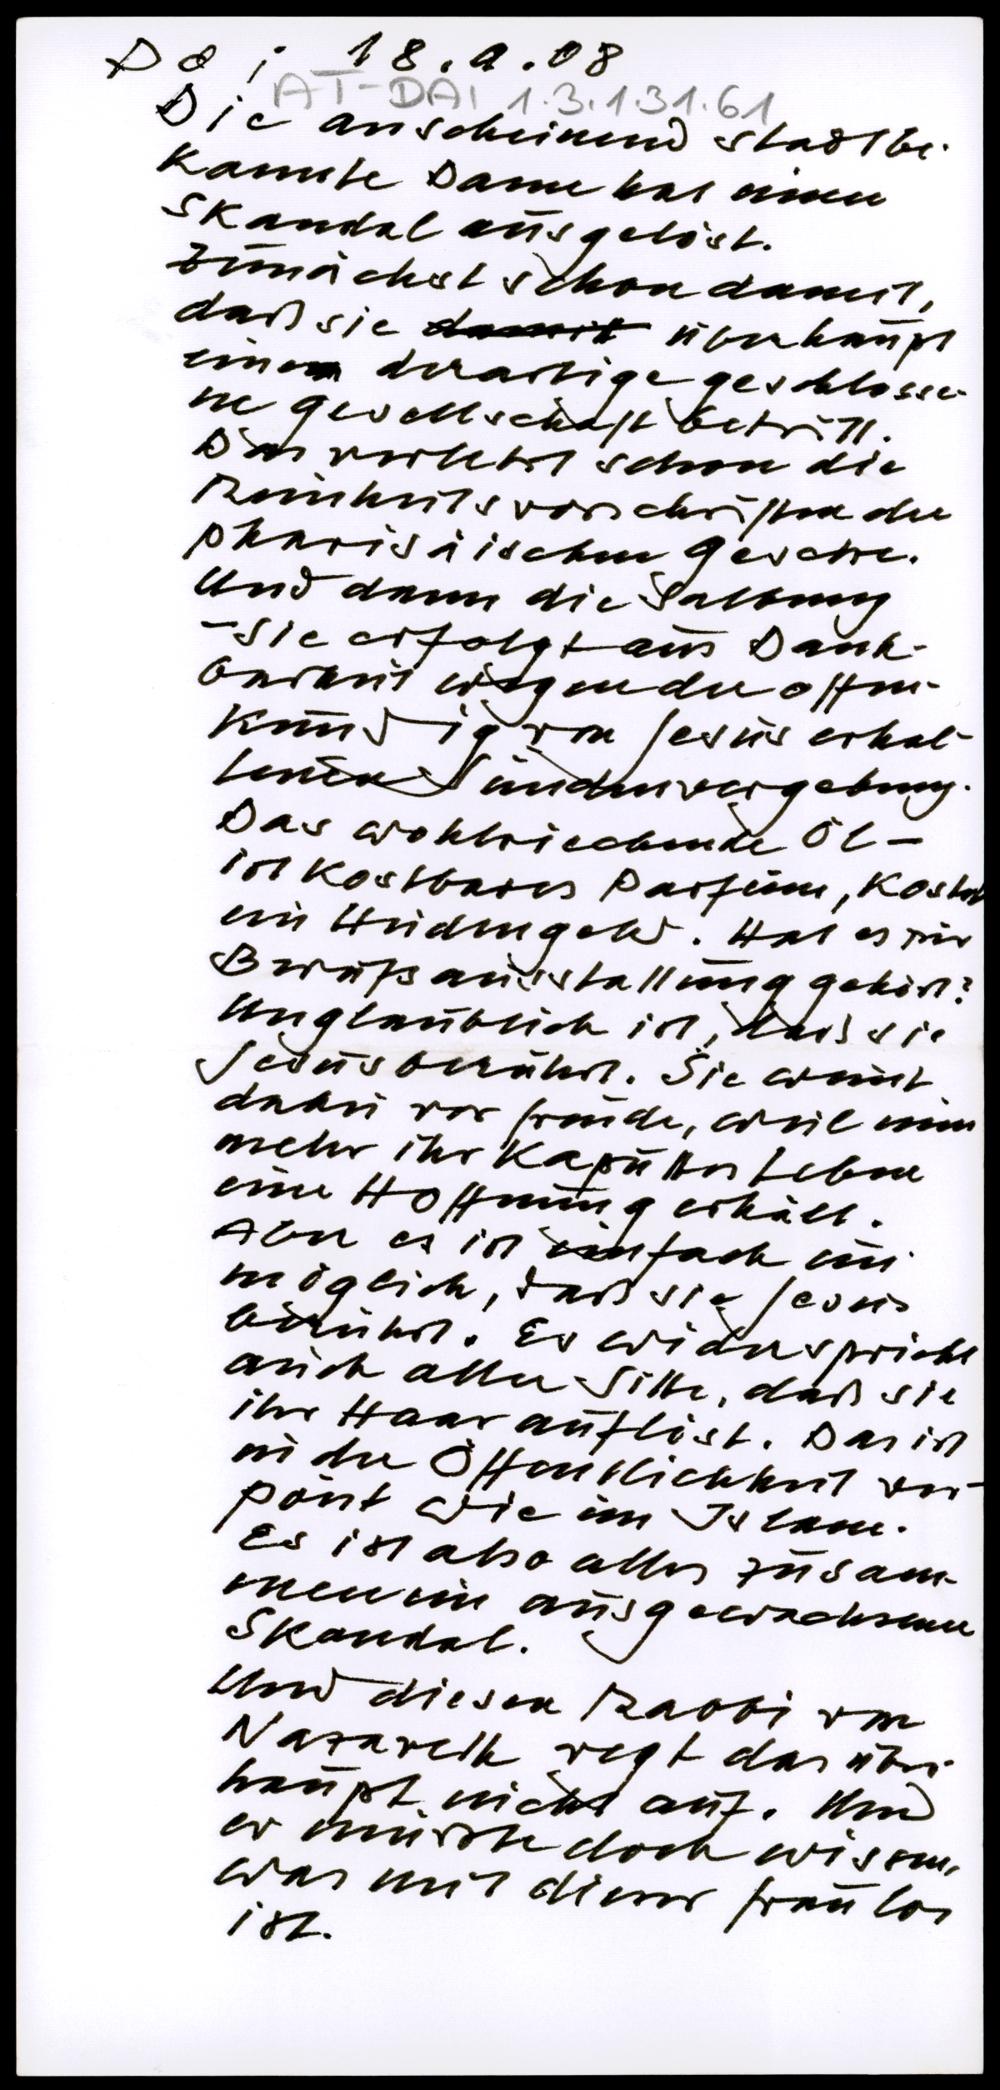 Do; 18.9.08
AT-DAI 1.3.1.31.61
Die anscheinend stadtbe-
kannte Dame hat einen
Skandal ausgelöst.
Zunächst schon damit,
daß sie damit überhaupt
eine derartige geschlosse-
ne Gesellschaft betritt.
Das verletzt schon die
Reinheitsvorschriften der
pharisäischen Gesetze.
Und dann die Salbung
- Sie erfolgt aus Dank-
barkeit wegen der offen-
kundig von Jesus erhal-
tenen Sündenvergebung.
Das wohlriechende Öl -
ist kostbares Parfüm, kostet
ein Heidengeld. Hat es zur
Berufsausstattung gehört?
Unglaublich ist, daß sie
Jesus berührt. Sie weint
dabei vor Freude, weil nun
mehr ihr kaputtes Leben
eine Hoffnung erhält.
Aber es ist einfach un-
möglich, daß sie Jesus
berührt. Es widerspricht
auch aller Sitte, daß sie
ihr Haar auflöst. Das ist
in der Öffentlichkeit ver-
pönt wie im Islam.
Es ist also alles zusam-
men ein ausgewachsener
Skandal.
Und diesen Rabbi von
Nazareth regt das über-
haupt nicht auf. Und
er müßte doch wissen,
was mit dieser Frau los
ist.